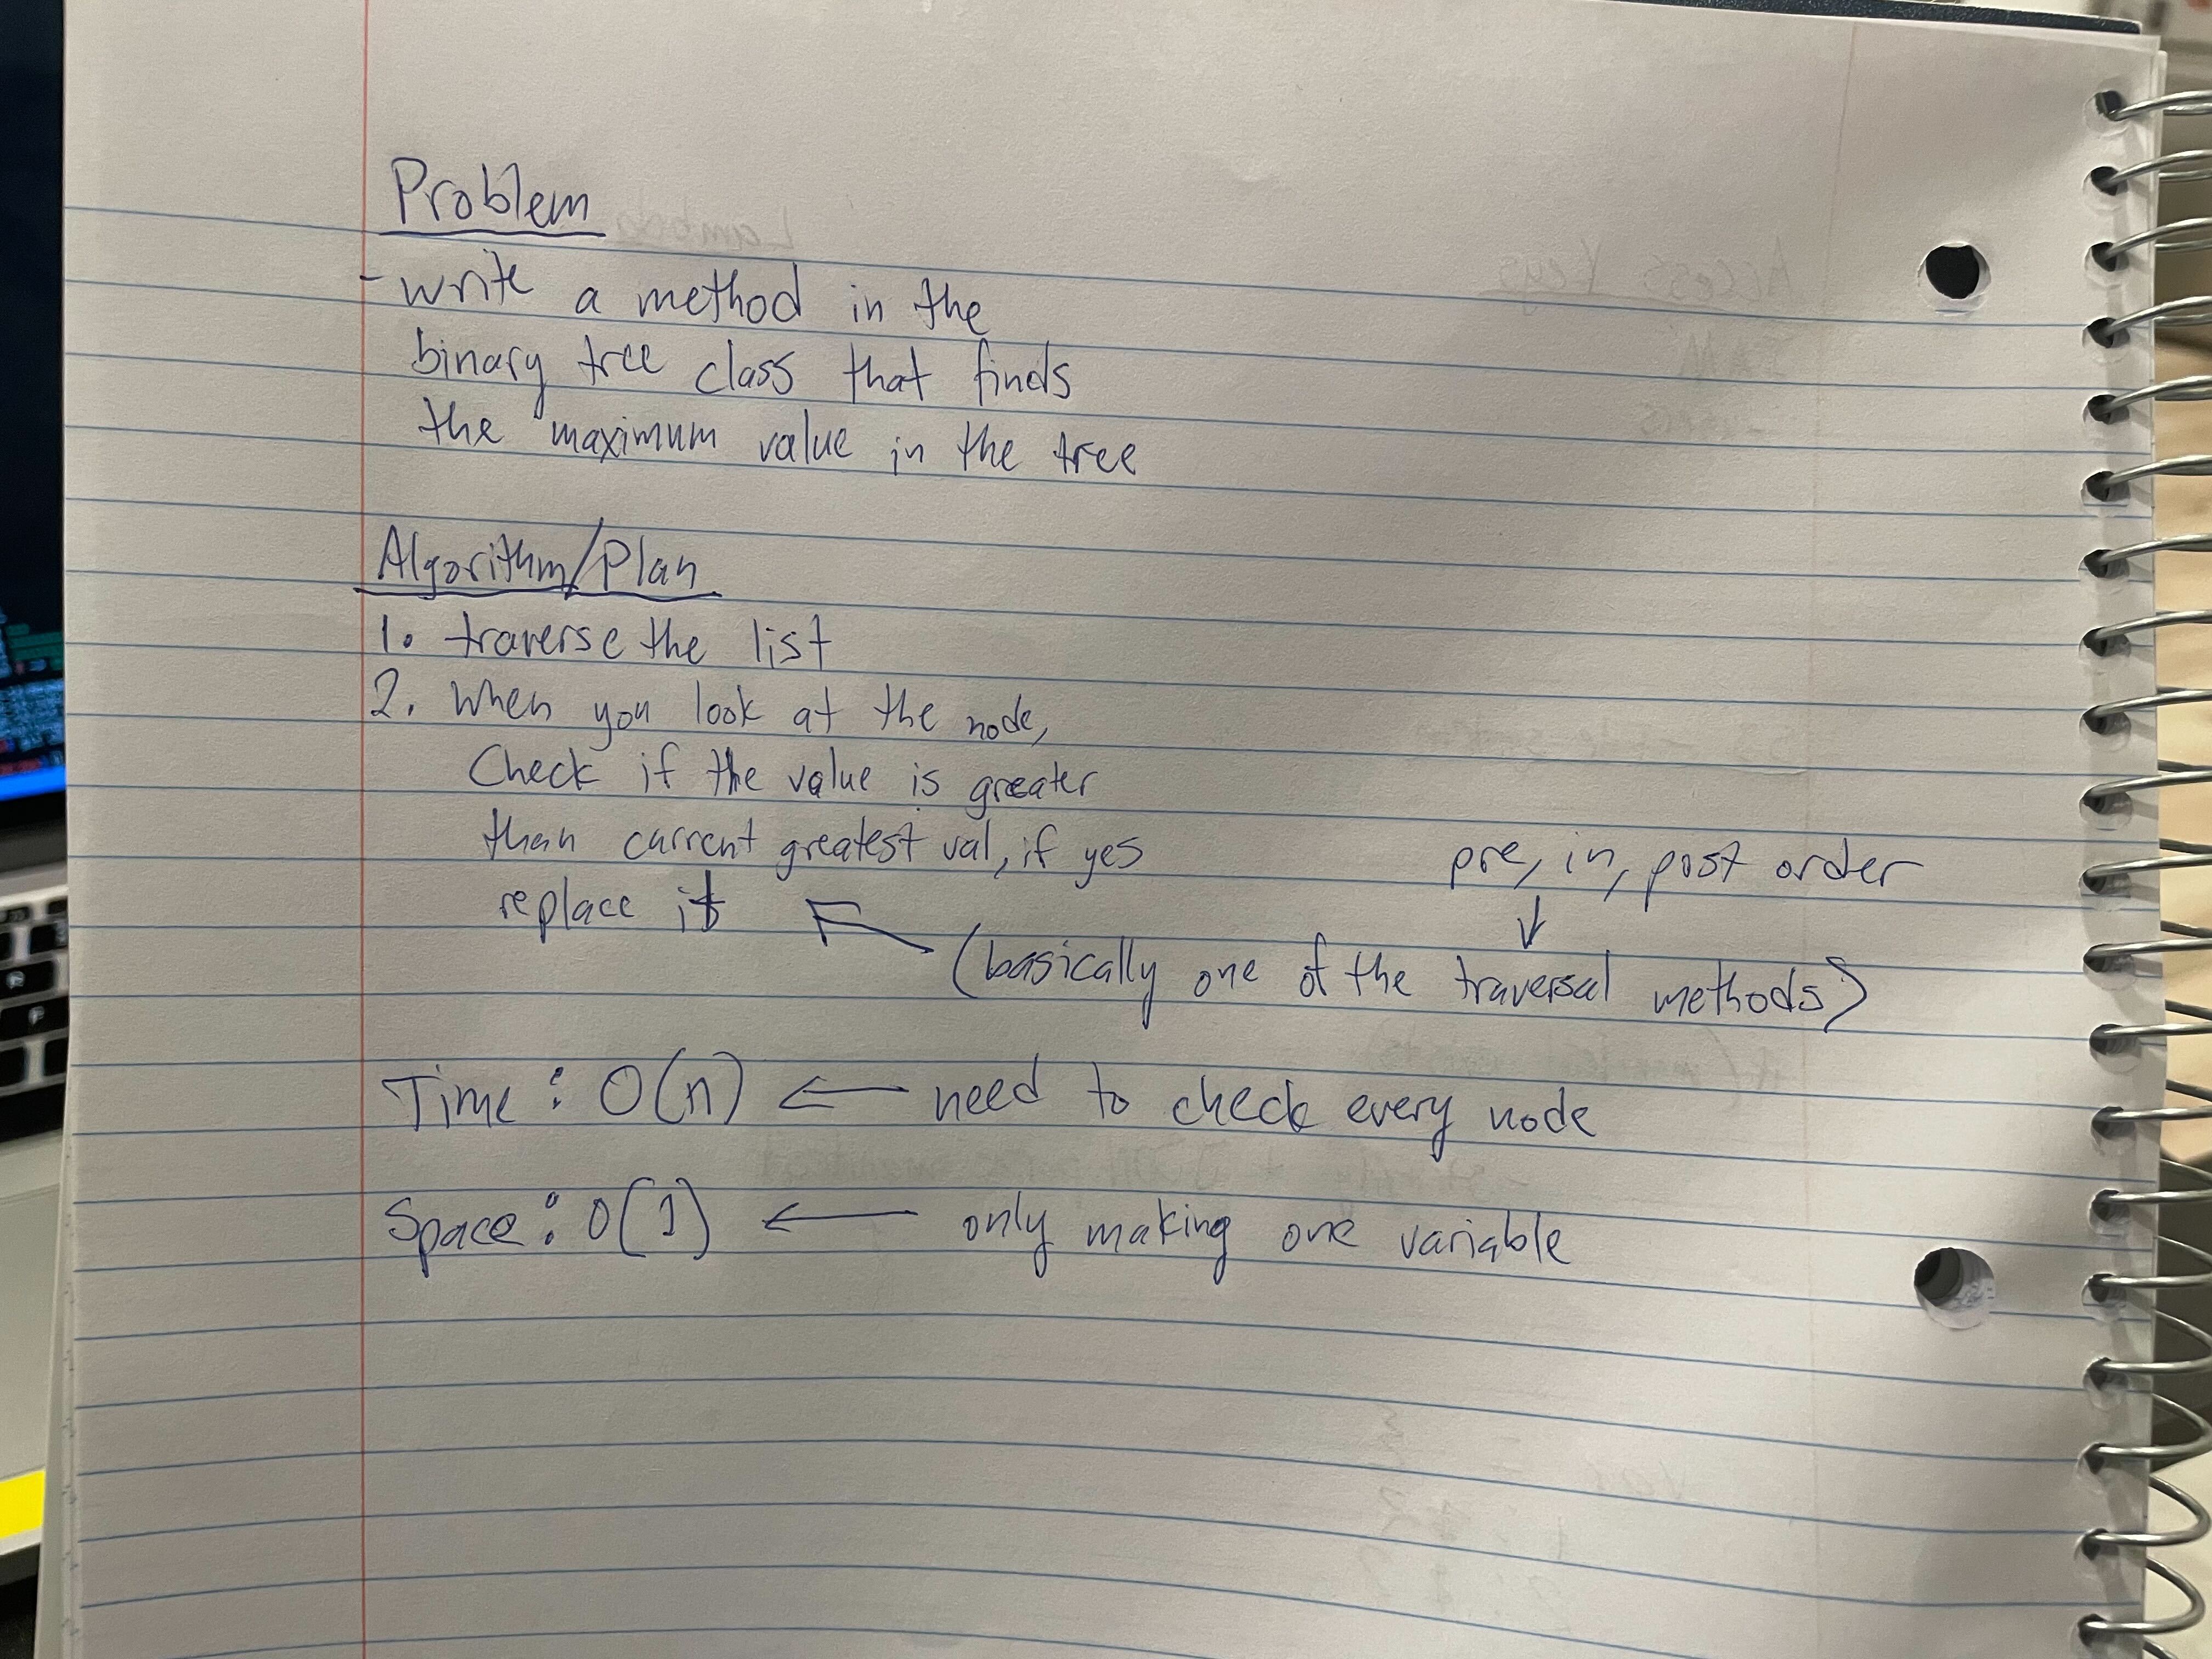 Problem
- write a method in the
binary tree class that finds
the maximum value in the tree
Algorithm/Plan
1. traverse the list
2. When you look at the node,
Check if the value is greater
than current greatest val, if yes
replace it
pre, in, post order
(basically one of the traversal methods)
Time: O(n) ← need to check every node
Space: O(1) ← only making one variable